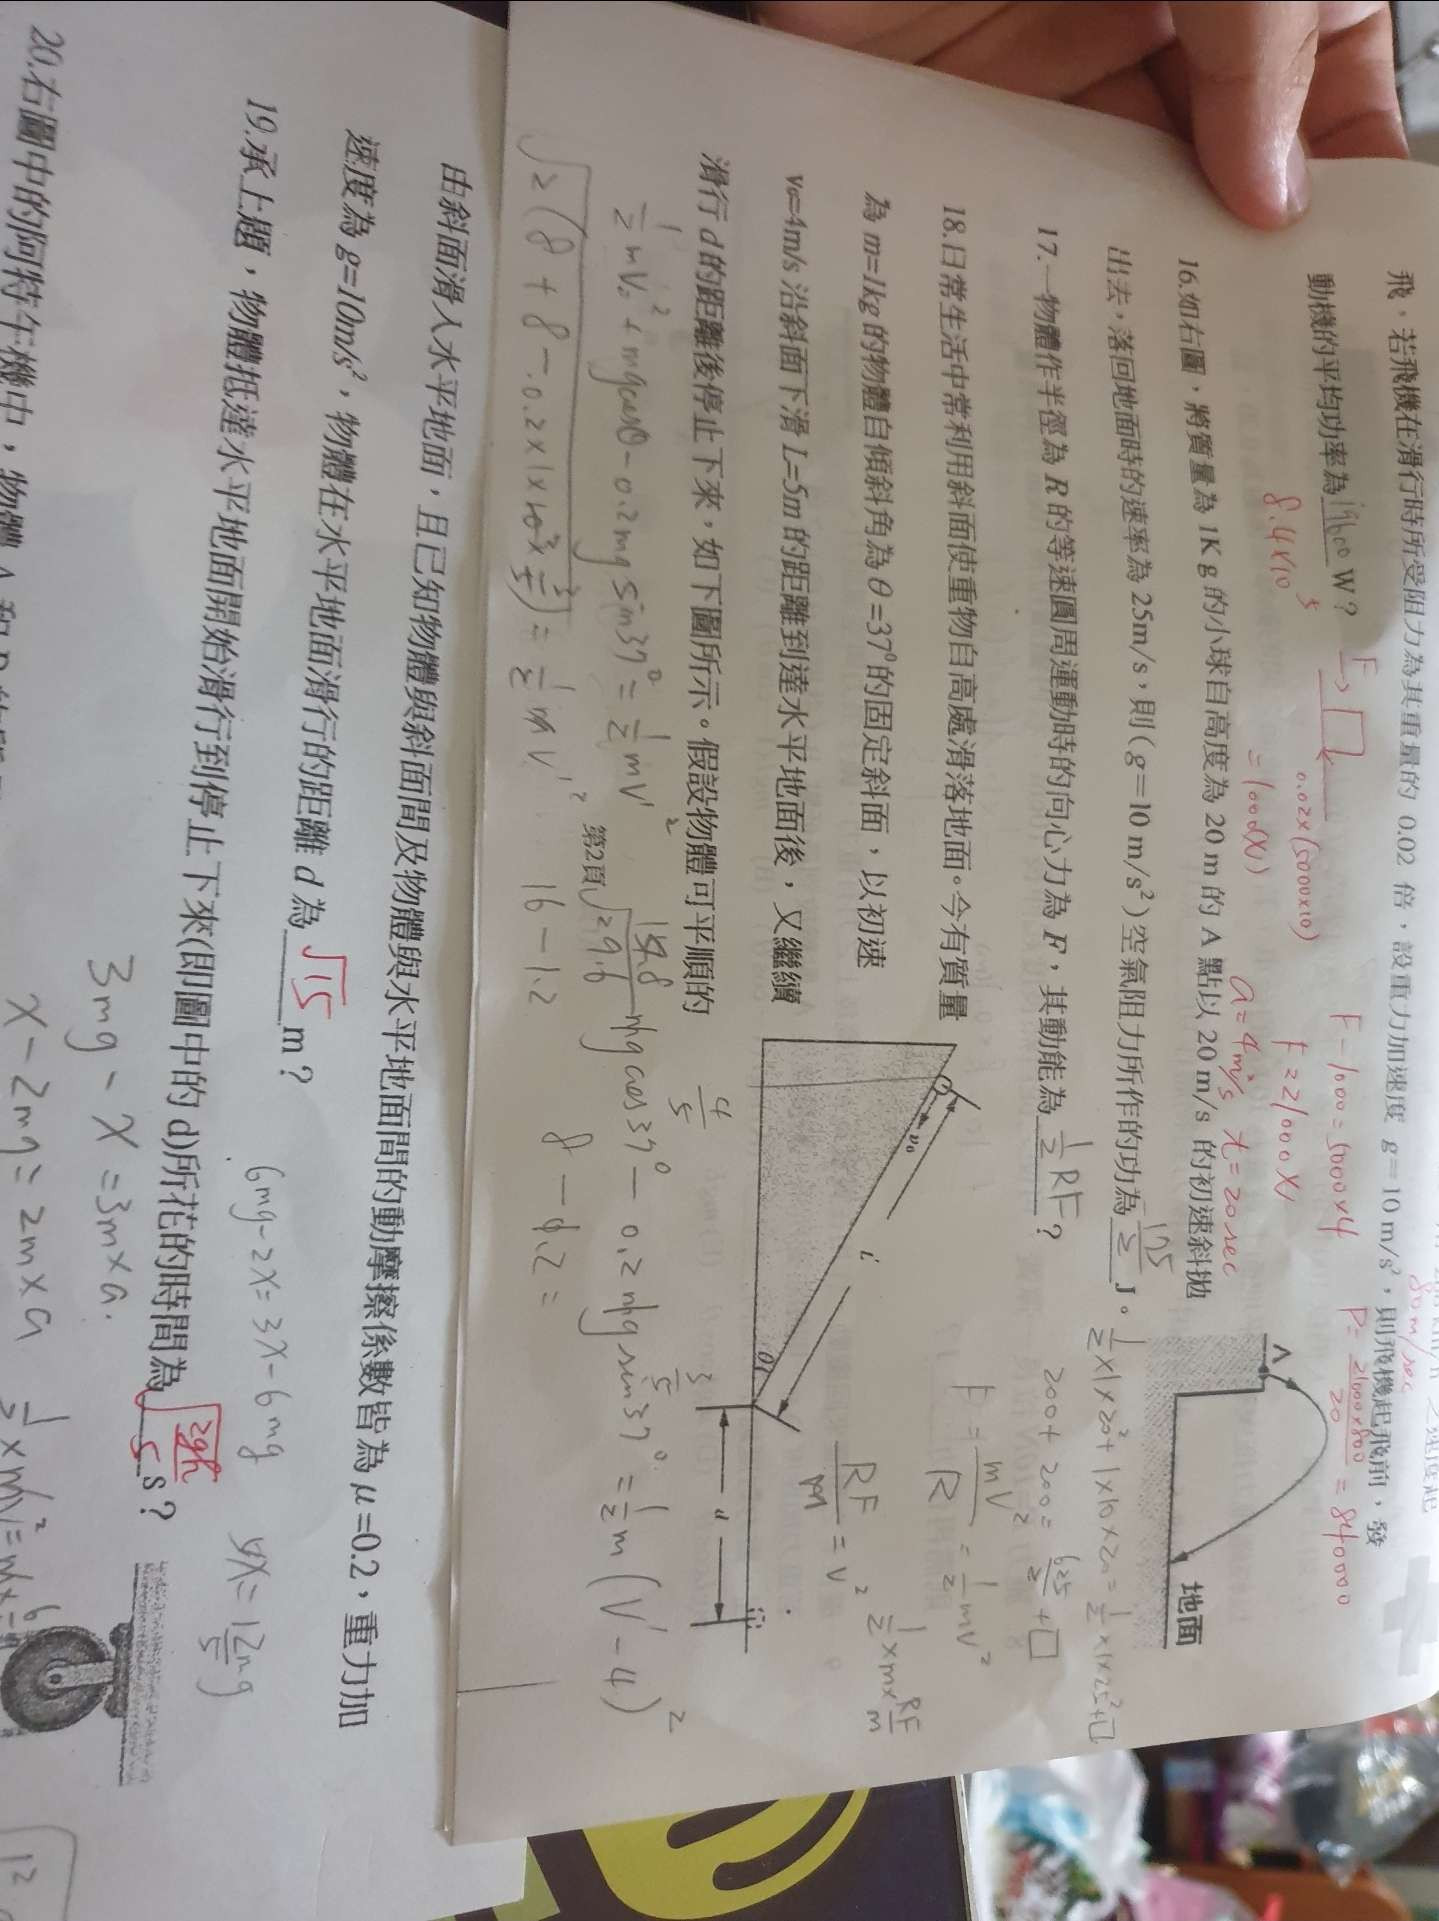 飛。若飛機在滑行時所受阻力為其重量的 0.02 倍，設重力加速度 g＝10 m/s²，則飛機起飛前，發
動機的平均功率為19600 W？
8.4×10⁵
F
0.02×(5000×10)
=1000(N)
F-1000=5000×4
F=21000N
a=4m/s t=20sec
80m/sec
P=21000×800/20=840000
16.如右圖，將質量為 1Kg 的小球自高度為 20 m 的 A 點以 20 m/s 的初速斜拋
出去，落回地面時的速率為 25m/s，則(g＝10 m/s²)空氣阻力所作的功為 J。
A
地面
½×1×20²+1×10×20=½×1×25²+□
200+200=625/2+□
17.一物體作半徑為 R 的等速圓周運動時的向心力為 F，其動能為½RF？
F=mv²/R=½mv²
RF/m=v²
½×m×RF/m
18.日常生活中常利用斜面使重物自高處滑落地面。今有質量
為 m=1kg 的物體自傾斜角為 θ=37⁰的固定斜面，以初速
v₀=4m/s 沿斜面下滑 L=5m 的距離到達水平地面後，又繼續
滑行 d 的距離後停止下來，如下圖所示。假設物體可平順的
v₀
L
θ
d
½mv₀²+mgcosθ-0.2mgsin37°=½mv'²
第2頁
√29.6
mgcos37°-0.2mgsin37°=½m(v'-4)²
4/5
3/5
√2(8+8-0.2×1×10×3/5)=½mv'²
16-1.2
8-1.2=
由斜面滑入水平地面，且已知物體與斜面間及物體與水平地面間的動摩擦係數皆為 μ=0.2，重力加
速度為 g=10m/s²，物體在水平地面滑行的距離 d 為√15 m？
19.承上題，物體抵達水平地面開始滑行到停止下來(即圖中的 d)所花的時間為 s？
6mg-2x=3x-6mg
3mg-x=3m×a.
x-2mg=2m×a
20.右圖中的阿特午機中，物體 A 和 B